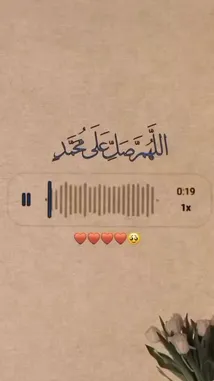 اللَّهُمَّ صَلِّ عَلَى مُحَمَّدٍ
0:19
1x